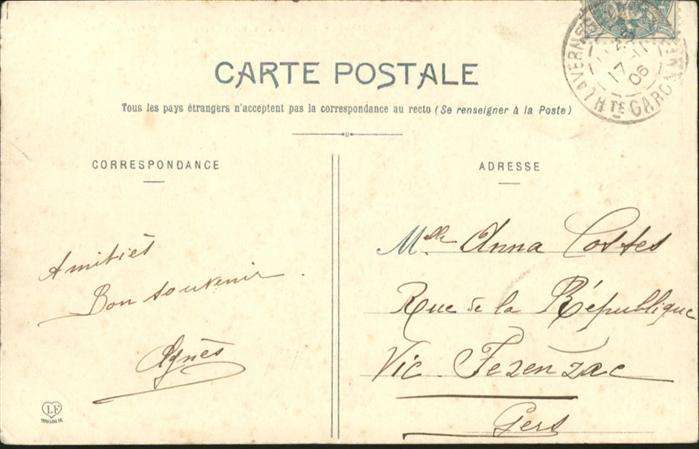 CARTE POSTALE
Tous les pays étrangers n'acceptent pas la correspondance au recto (Se renseigner à la Poste)
CORRESPONDANCE
Amitiés
Bon souvenir.
Agnès
ADRESSE
Melle Anna Costes
Rue de la République
Vic Fezenzac
Gers
17
06
HTE GARONNE
L.F